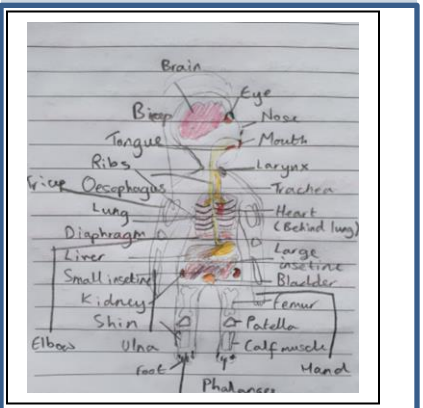 Brain
Eye
Bicep
Nose
Tongue
Mouth
Ribs
Larynx
Tricep
Oesophagus
Trachea
Lung
Heart
(Behind lung)
Diaphragm
Liver
Large
insetine
Small insetine
Bladder
Kidney
Femur
Shin
Patella
Elbow
Ulna
Calf muscle
Foot
Hand
Phalanges